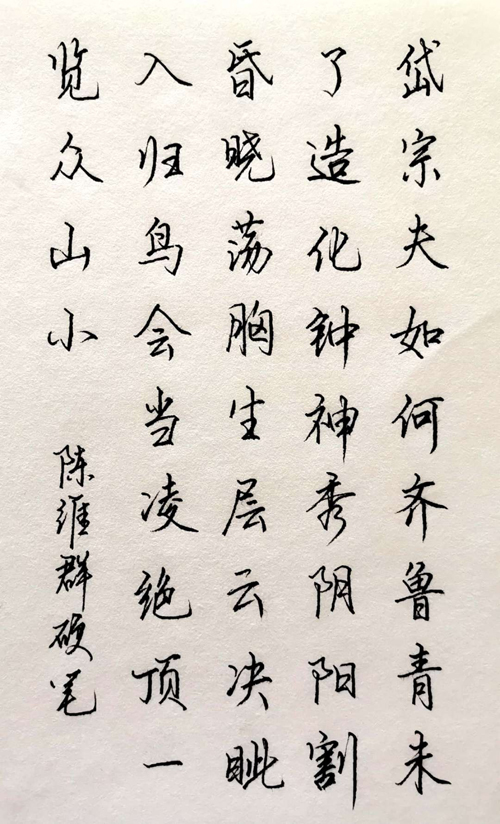 岱宗夫如何齐鲁青未
了造化钟神秀阴阳割
昏晓荡胸生层云决眦
入归鸟会当凌绝顶一
览众山小
陈维群硬笔